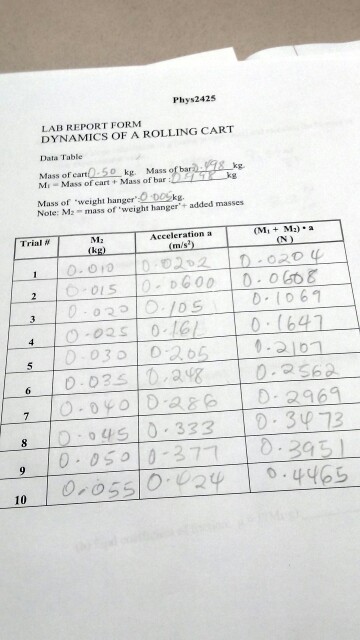 Phys2425
LAB REPORT FORM
DYNAMICS OF A ROLLING CART
Data Table
Mass of cart 0.50 kg. Mass of bar 0.498 kg.
M₁ = Mass of cart + Mass of bar : kg
Mass of 'weight hanger' 0.005 kg.
Note: M₂ = mass of 'weight hanger' + added masses
Trial # M₂ (kg) Acceleration a (m/s²) (M₁ + M₂) • a (N)
1 0.010 0.0202 0.0204
2 0.015 0.0600 0.0608
3 0.020 0.105 0.1069
4 0.025 0.161 0.1647
5 0.030 0.205 0.2107
6 0.035 0.248 0.2562
7 0.040 0.286 0.2969
8 0.045 0.333 0.3473
9 0.050 0.377 0.3951
10 0.055 0.424 0.4465